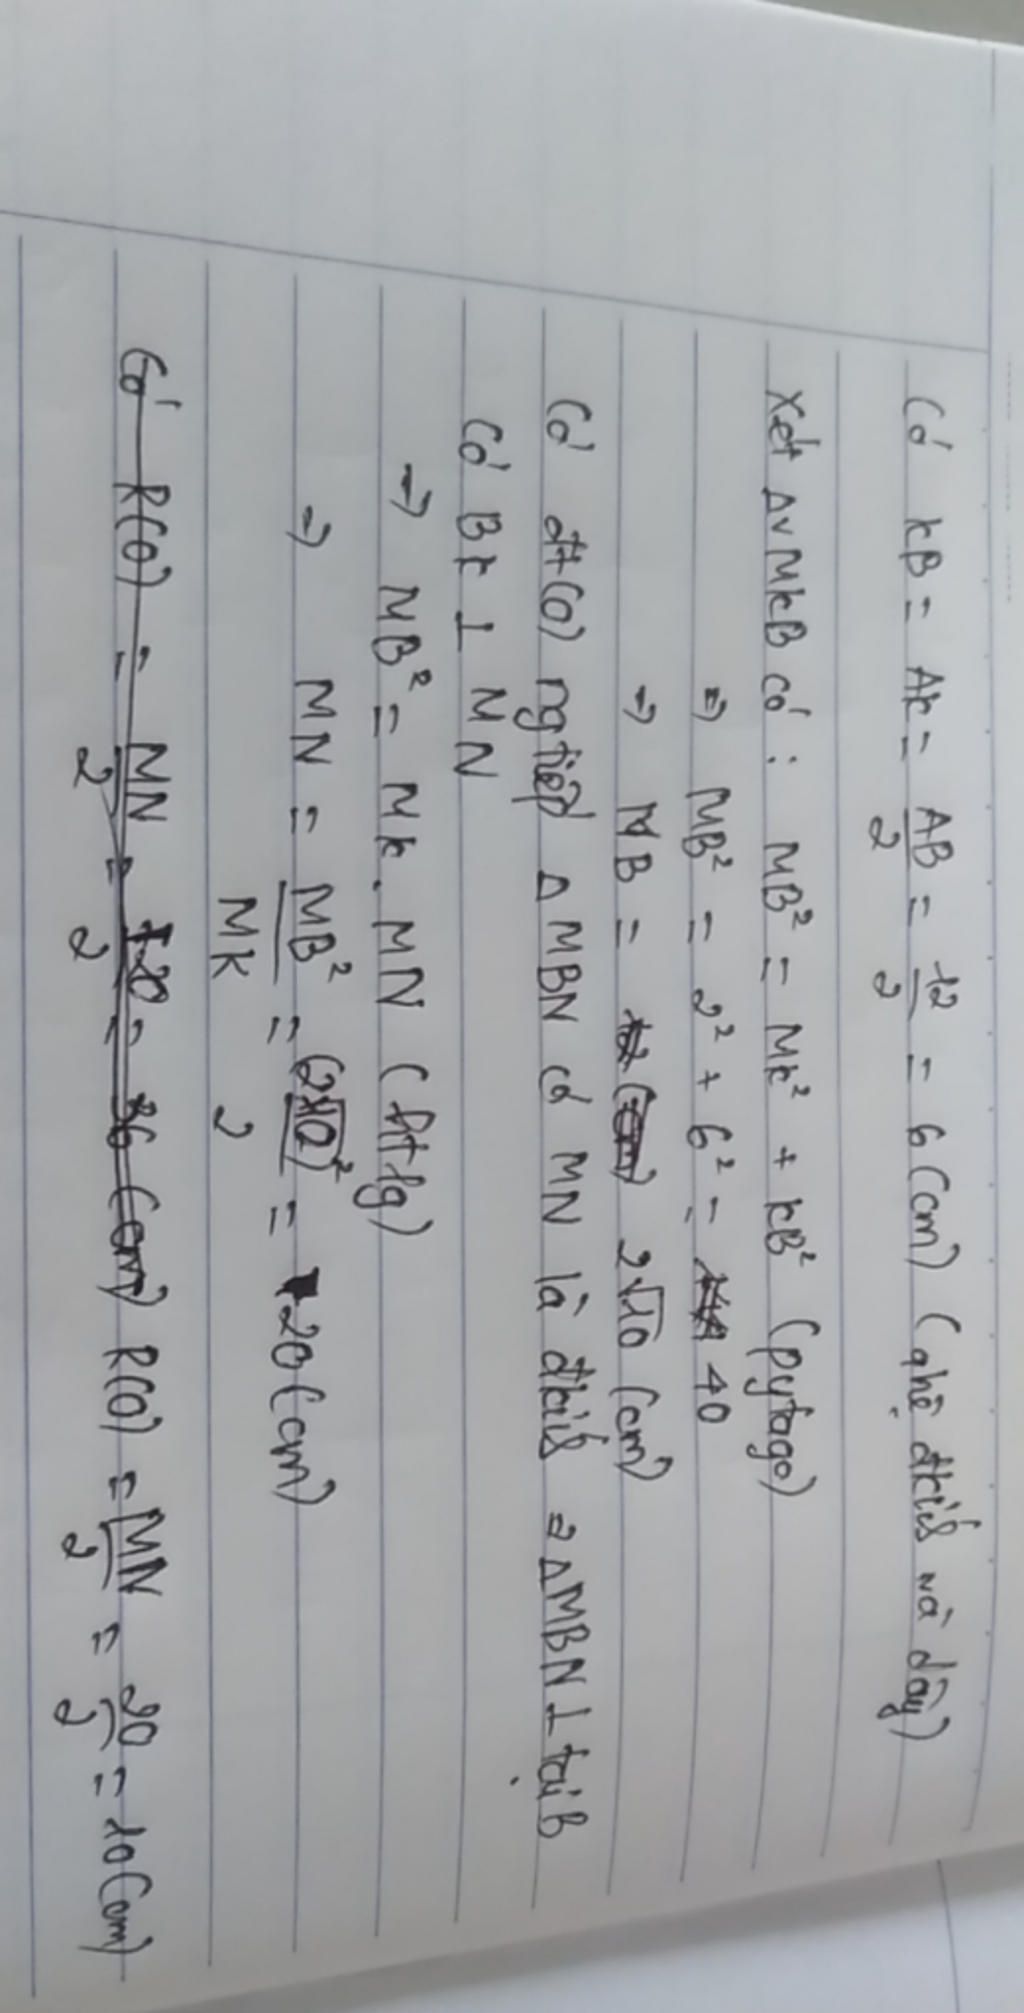 Có kB = Ak = AB/2 = 12/2 = 6 (cm) (qhệ đkính và dây)
Xét Δv MkB có : MB² = Mk² + kB² (pytago)
=> MB² = 2² + 6² = 40
=> MB = 2√10 (cm)
Có đt(O) ngtiếp Δ MBN có MN là đkính => ΔMBN ⊥ tại B
Có Bk ⊥ MN
=> MB² = Mk . MN (htlg)
=> MN = MB²/MK = (2√10)²/2 = 20 (cm)
Có R(O) = MN/2 = 20/2 = 36 (cm) R(O) = MN/2 = 20/2 = 10 (cm)